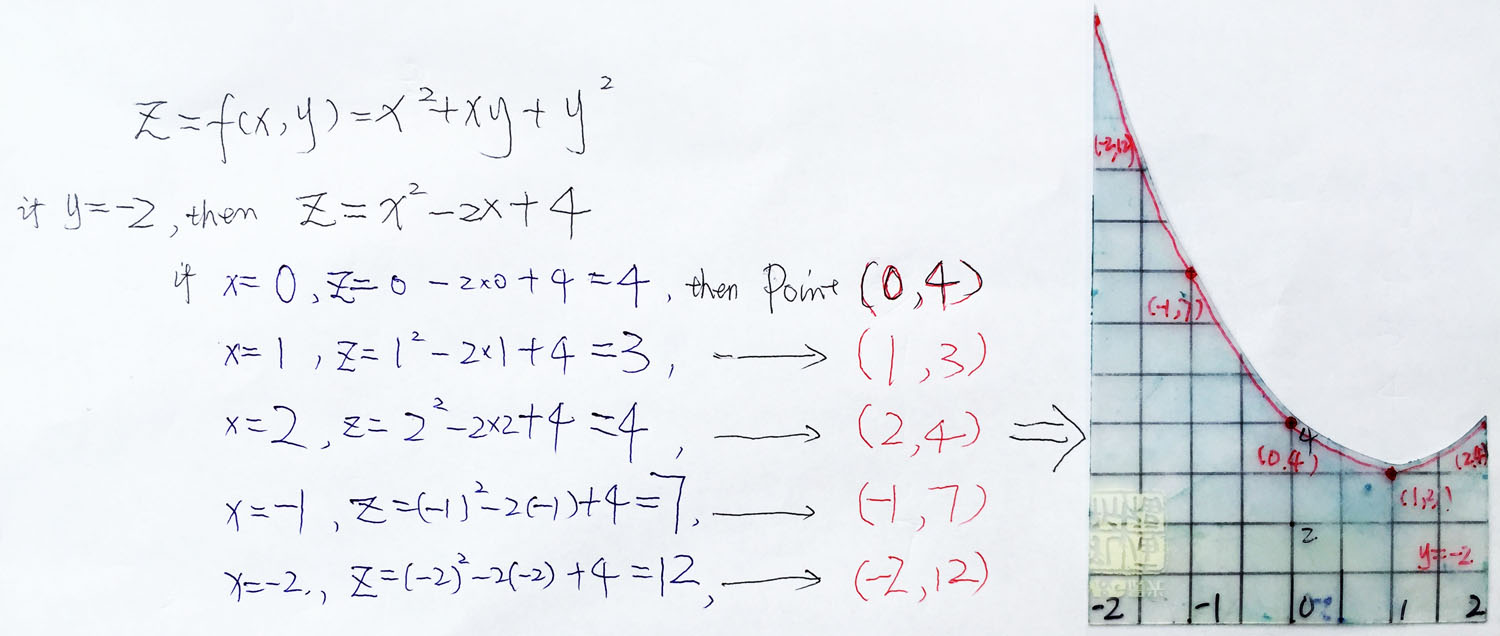 z=f(x,y)=x²+xy+y²
if y=-2, then z=x²-2x+4
if x=0, z=0-2×0+4=4, then Point (0,4)
x=1, z=1²-2×1+4=3, → (1,3)
x=2, z=2²-2×2+4=4, → (2,4) ⇒
x=-1, z=(-1)²-2(-1)+4=7, → (-1,7)
x=-2, z=(-2)²-2(-2)+4=12, → (-2,12)
(-2,12)
(-1,7)
4
(0,4)
(2,4)
(1,3)
2
y=-2
-2 -1 0 1 2